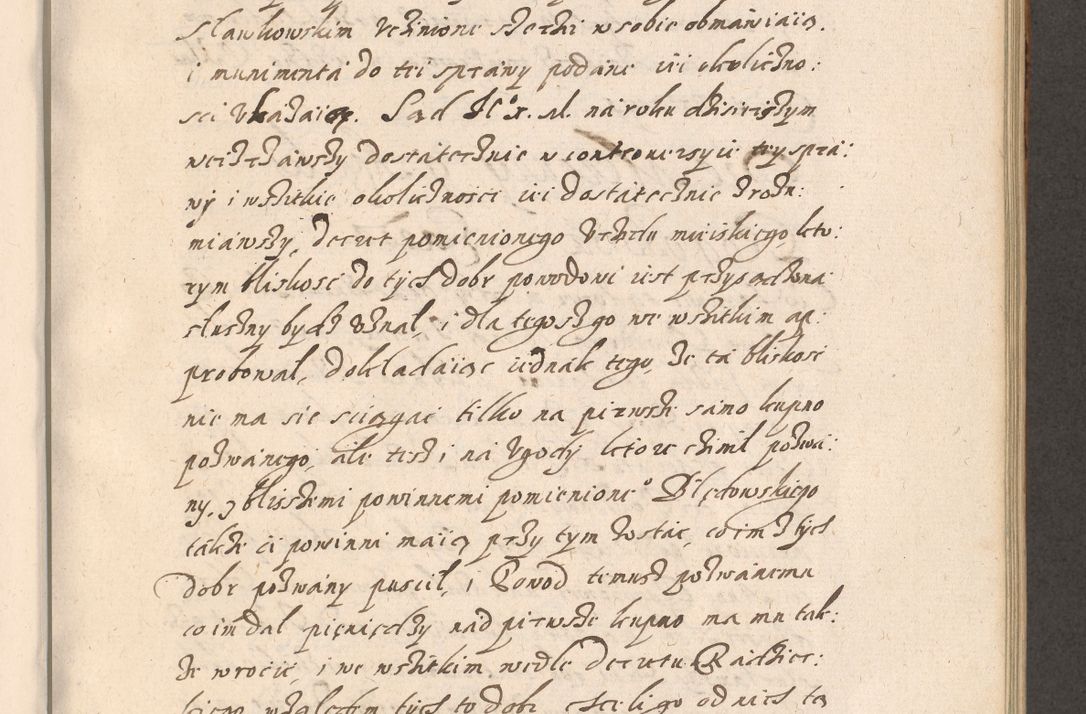 Sławkowskim uczinione skozki w sobie obmawiaią.
i munimenta do tei sprawy podane iei okoliczno:
sci ukazaią. Sad Je° x. M. na roku dzisieiszym
weizrzawszy dostatecznie w controuersyie tey spra:
wÿ i wszitkie okolicznosci iei dostatecznie zrozu:
miawszy, decret pomienionego Urzędu mieiskiego, kto:
rym bliskosc do tych dobr powodowi iest przysądzona
słuszny bydz uznał, i dla tegosz go we wszitkim ap:
probował, dokładaiąc iednak tego, ze ta bliskosc
nie ma sie sciągac tilko na pierwsze samo kupno
pozwanego, ale tesz i na ugody ktore czinił pozwa:
ny, z bliszemi powinnemi pomienione° Dłętowskiego
takze ci powinni maią przy tym zostac, co im z tych
dobr pozwany puscił, i Powod temusz pozwanemu
co im dał pieniędzy nad pierwsze kupno ma mu tak:
ze wrocic, i we wszitkim wedle decretu Radziec:
kiego względem tych to dobr esceli go od nich ta